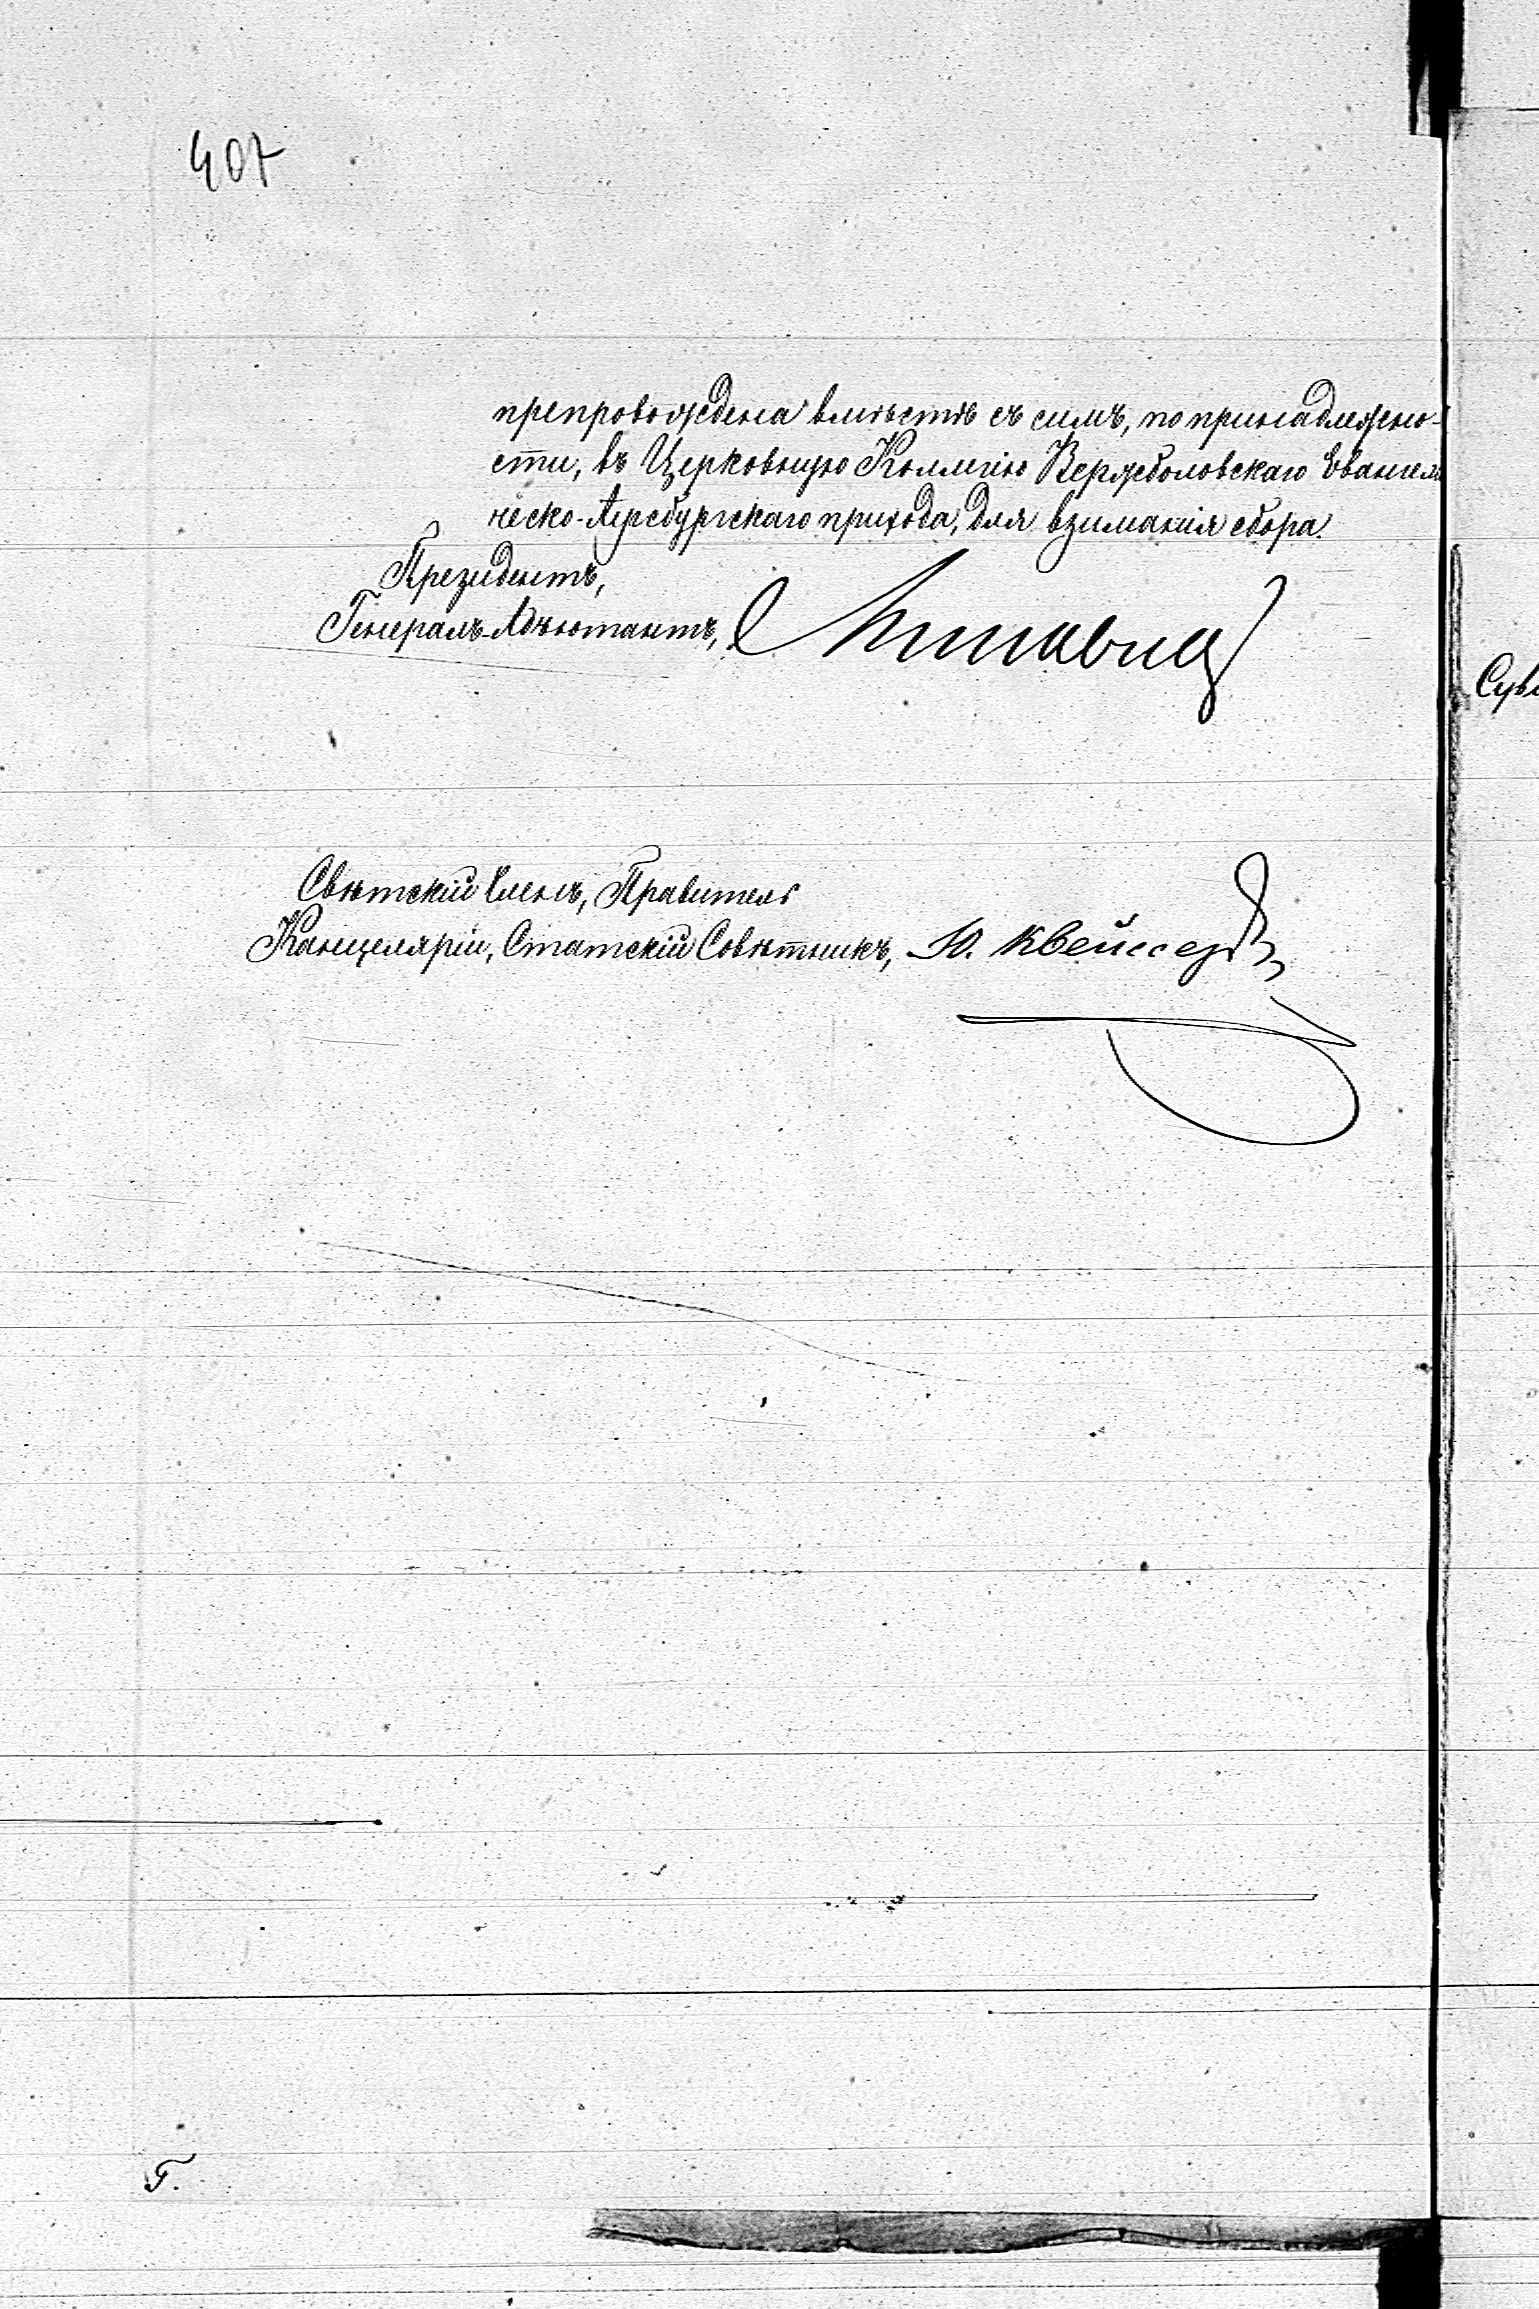 407
препровождена вмѣстѣ съ симъ, по принадлежно-
сти, въ Церковную Коллегію Вержболовскаго Евангели
ческо-Аугсбургскаго прихода, для взиманія сбора.
Президентъ,
Генералъ-Адъютантъ,
Свѣтскій Членъ, Правитель
Канцеляріи, Статскій Совѣтникъ, Ю. Квейссер
Г.